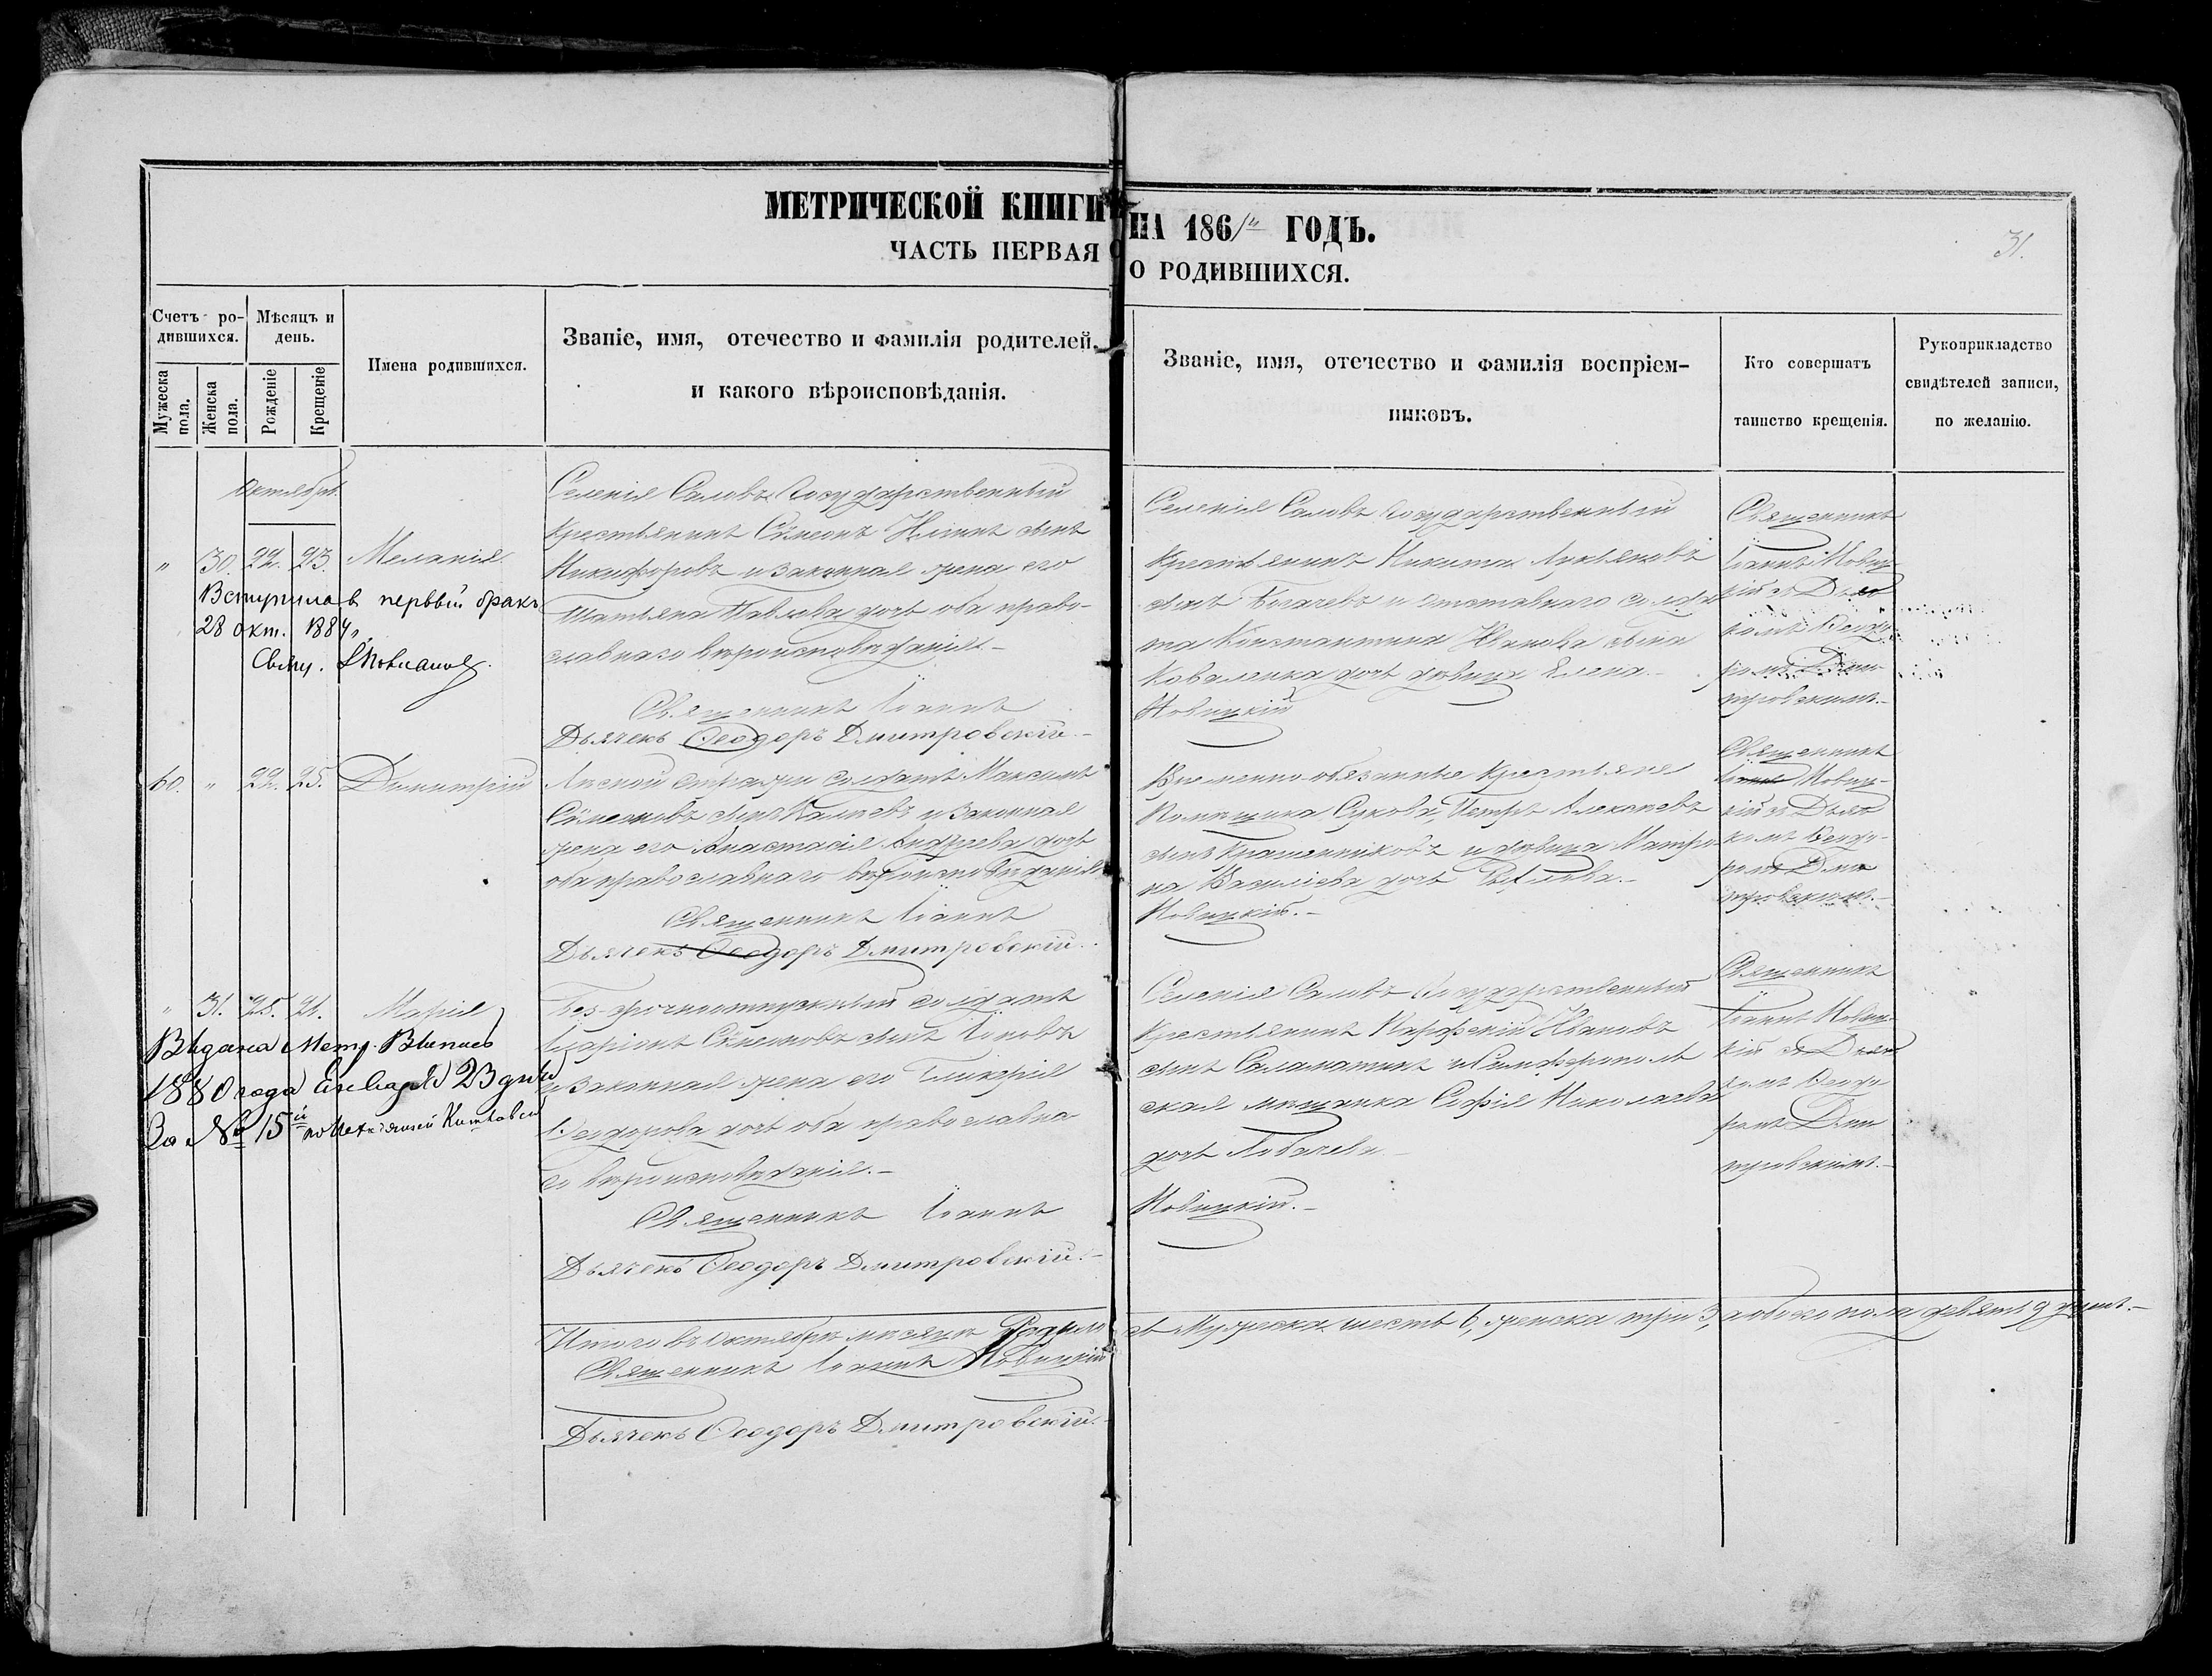 МЕТРИЧЕСКОЙ КНИГИ НА 186/4 ГОДЪ.
ЧАСТЬ ПЕРВАЯ О РОДИВШИХСЯ.
31.
Счетъ родившихся.
Мужеска пола.
Женска пола.
Мѣсяцъ и день.
Рожденіе
Крещеніе
Имена родившихся.
Званіе, имя, отечество и фамилія родителей,
и какого вѣроисповѣданія.
Званіе, имя, отечество и фамилія воспріем-
никовъ.
Кто совершатъ
таинство крещенія.
Рукоприкладство
свидѣтелей записи,
по желанію.
Октябрь
" 30. 22. 23. Меланія
Вступила в первый бракъ
28 окт. 1884
Селенія Саловъ Государственный
Крестьянинъ Сѵмеонъ сынъ
Никифоровъ и законная жена его
Татьяна Павлова дочь оба право-
славнаго вѣроисповѣданія.-
Священникъ Іоаннъ
Дьячекъ Ѳеодоръ Дмитровскій.-
Селенія Саловъ Государственный
Крестьянинъ Никита
сынъ и отставнаго солда
та Константина Иванова сына
Коваленка дочь дѣвица Елена.-
Новицкій
Священникъ
Іоаннъ Новиц-
кій съ Дьяч
комъ Ѳеодо-
ромъ Дми-
тровскимъ.-
60. " 22. 25. Димитрій
Лѣсной стражи солдатъ Максимъ
Сѵмеоновъ сынъ и законная
жена его Анастасія Андреева дочь
оба православнаго вѣроисповѣданія
Священникъ Іоаннъ
Дьячекъ Ѳеодоръ Дмитровскій.
Временно-обязанные Крестьяне
Помѣщика Петръ Алексѣевъ
сынъ и дѣвица Матро-
на Василіева дочь
Новицкій.-
Священникъ
Іоаннъ Новиц-
кій съ Дьяч
комъ Ѳеодо-
ромъ Дми
тровскимъ.-
" 31. 25. Марія
Выдана Метр. Выпись
1880 года Января 23 дня
За № 15й
Без-срочноотпускный солдатъ
Иларіонъ Сѵмеоновъ сынъ
и законная жена его Гликерія
Ѳеодорова дочь оба православна
го вѣроисповѣданія.-
Священникъ Іоаннъ
Дьячекъ Ѳеодоръ Дмитровскій.-
Селенія Саловъ Государственный
Крестьянинъ Ивановъ
сынъ и Симферополь
ская мѣщанка Софія Николаева
дочь
Новицкій.-
Священникъ
Іоаннъ Новиц-
кій съ Дьяч
комъ Ѳеодо
ромъ Дми
тровскимъ.-
Итого въ Октябрѣ мѣсяцѣ Родилось Мужеска шесть 6, женска три 3, а обоего пола девять 9 душъ.-
Священникъ Іоаннъ Новицкій
Дьячекъ Ѳеодоръ Дмитровскій.-